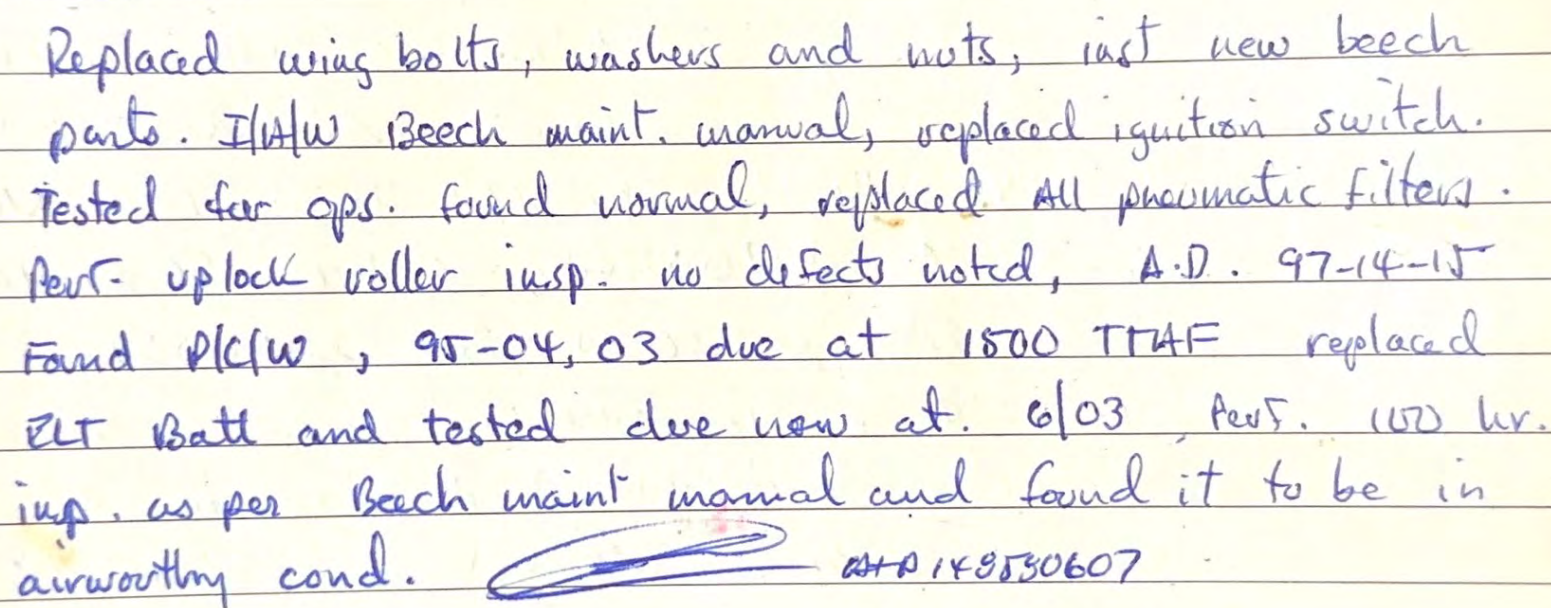 Replaced wing bolts, washers and nuts, inst new beech
parts. I/A/W Beech maint. manual, replaced ignition switch.
Tested for ops. found normal, replaced All pneumatic filters.
Perf. uplock roller insp. no defects noted, A.D. 97-14-15
Found P/C/W, 95-04,03 due at 1500 TTAF replaced
ELT Batt and tested due now at. 6/03, Perf. 100 hr.
insp. as per Beech maint manual and found it to be in
airworthy cond.